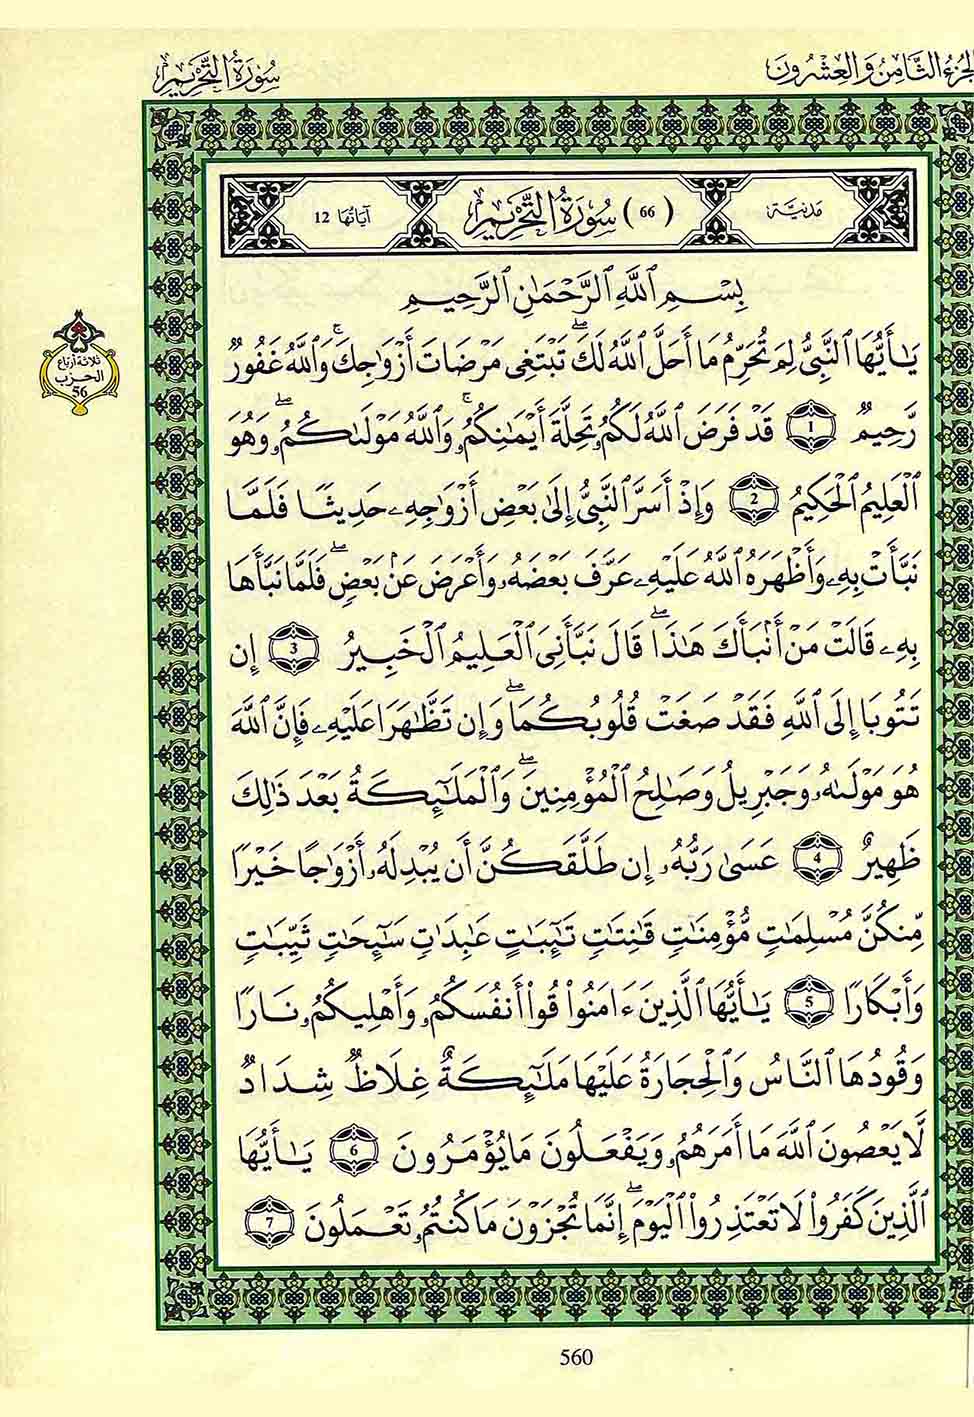 الجزء الثامن والعشرون
سورة التحريم
مدنية
(66) سورة التحريم
آياتها 12
بِسْمِ ٱللَّهِ ٱلرَّحْمَٰنِ ٱلرَّحِيمِ
يَٰٓأَيُّهَا ٱلنَّبِىُّ لِمَ تُحَرِّمُ مَآ أَحَلَّ ٱللَّهُ لَكَ ۖ تَبْتَغِى مَرْضَاتَ أَزْوَٰجِكَ ۚ وَٱللَّهُ غَفُورٌ
رَّحِيمٌ 1 قَدْ فَرَضَ ٱللَّهُ لَكُمُۥ تَحِلَّةَ أَيْمَٰنِكُمُۥ ۚ وَٱللَّهُ مَوْلَىٰكُمُۥ ۖ وَهُوَ
ٱلْعَلِيمُ ٱلْحَكِيمُ 2 وَإِذْ أَسَرَّ ٱلنَّبِىُّ إِلَىٰ بَعْضِ أَزْوَٰجِهِۦ حَدِيثًا فَلَمَّا
نَبَّأَتْ بِهِۦ وَأَظْهَرَهُ ٱللَّهُ عَلَيْهِۦ عَرَّفَ بَعْضَهُۥ وَأَعْرَضَ عَنۢ بَعْضٍ ۖ فَلَمَّا نَبَّأَهَا
بِهِۦ قَالَتْ مَنْ أَنۢبَأَكَ هَٰذَا ۖ قَالَ نَبَّأَنِىَ ٱلْعَلِيمُ ٱلْخَبِيرُ 3 إِن
تَتُوبَآ إِلَى ٱللَّهِ فَقَدْ صَغَتْ قُلُوبُكُمَا ۖ وَإِن تَظَّٰهَرَا عَلَيْهِۦ فَإِنَّ ٱللَّهَ
هُوَ مَوْلَىٰهُۥ وَجَبْرِيلُ وَصَٰلِحُ ٱلْمُؤْمِنِينَ ۖ وَٱلْمَلَٰٓئِكَةُ بَعْدَ ذَٰلِكَ
ظَهِيرٌ 4 عَسَىٰ رَبُّهُۥٓ إِن طَلَّقَكُنَّ أَن يُبْدِلَهُۥٓ أَزْوَٰجًا خَيْرًا
مِّنكُنَّ مُسْلِمَٰتٍ مُّؤْمِنَٰتٍ قَٰنِتَٰتٍ تَٰٓئِبَٰتٍ عَٰبِدَٰتٍ سَٰٓئِحَٰتٍ ثَيِّبَٰتٍ
وَأَبْكَارًا 5 يَٰٓأَيُّهَا ٱلَّذِينَ ءَامَنُوا۟ قُوٓا۟ أَنفُسَكُمُۥ وَأَهْلِيكُمُۥ نَارًا
وَقُودُهَا ٱلنَّاسُ وَٱلْحِجَارَةُ عَلَيْهَا مَلَٰٓئِكَةٌ غِلَاظٌ شِدَادٌ
لَّا يَعْصُونَ ٱللَّهَ مَآ أَمَرَهُمُۥ وَيَفْعَلُونَ مَا يُؤْمَرُونَ 6 يَٰٓأَيُّهَا
ٱلَّذِينَ كَفَرُوا۟ لَا تَعْتَذِرُوا۟ ٱلْيَوْمَ ۖ إِنَّمَا تُجْزَوْنَ مَا كُنتُمُۥ تَعْمَلُونَ 7
ثلاثة أرباع
الحزب
56
560